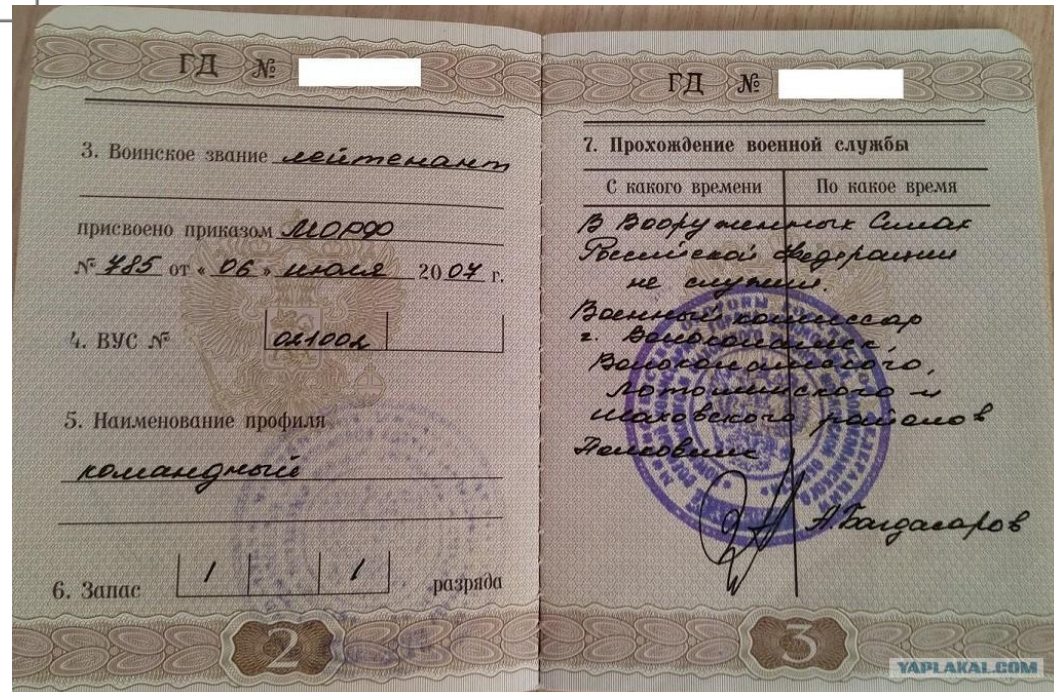 ГД №
3. Воинское звание лейтенант
присвоено приказом МОРФ
№ 785 от «06» июля 2007 г.
4. ВУС № 021002
5. Наименование профиля
командный
6. Запас 1 1 разряда
2
ГД №
7. Прохождение военной службы
С какого времени По какое время
В Вооруженных Силах
Российской Федерации
не служил.
Военный комиссар
г. Волоколамск,
Волоколамского,
Лотошинского и
Шаховского районов
Полковник
А. Багдасаров
3
YAPLAKAL.COM